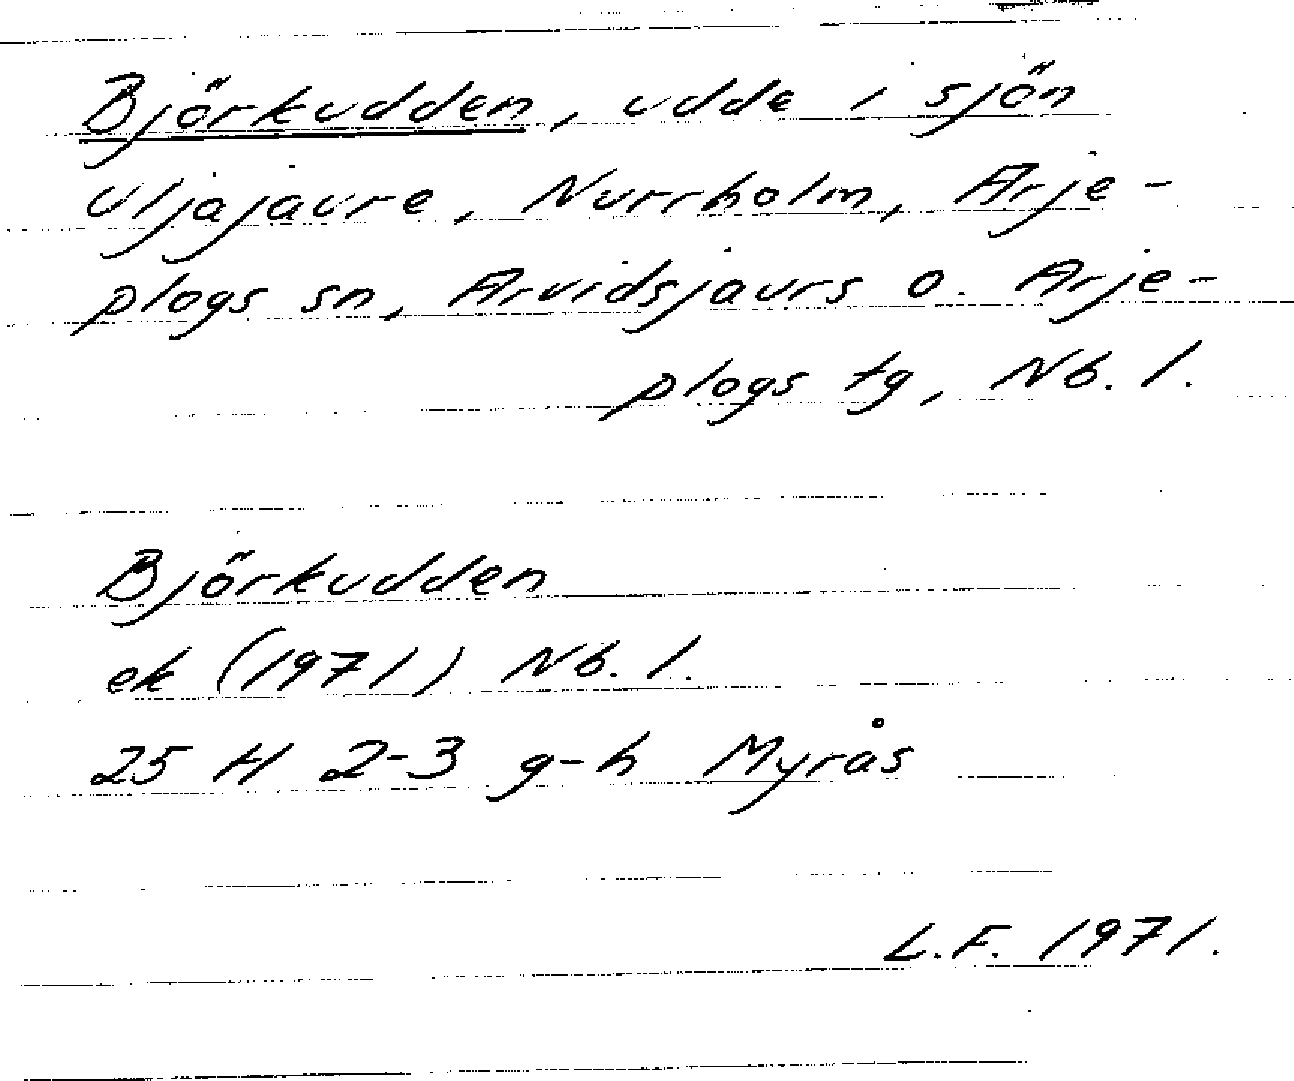 Björkudden, udde i sjön
Uljajaure, Nurrholm, Arje-
plogs sn, Arvidsjaurs o. Arje-
plogs tg, Nb. l.
Björkudden
ek (1971) Nb. l.
25 H 2-3 g-h Myrås
L.F. 1971.